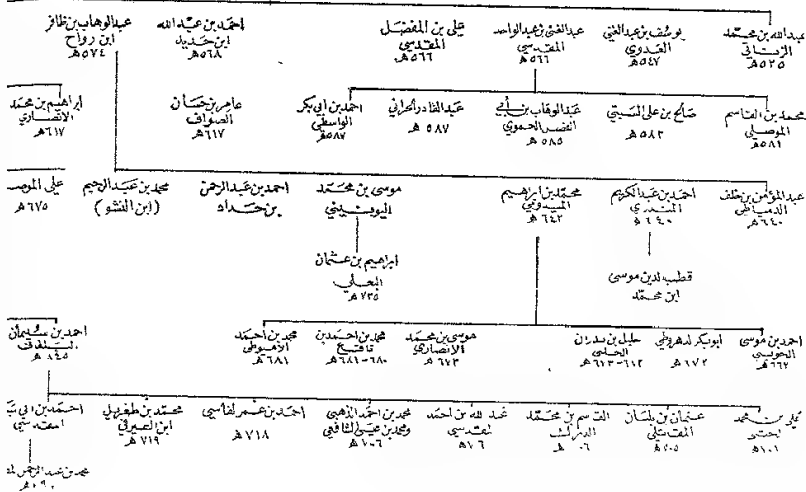 عبد الله بن محمد
الزناتي
٥٢٥ هـ
يوسف بن عبد الغني
الغدوي
٥٤٧ هـ
عبد الغني بن عبد الواحد
المقدسي
٥٦٦ هـ
علي بن المفضل
المقدسي
٥٦٦ هـ
احمد بن عبد الله
ابن حديد
٥٦٨ هـ
عبد الوهاب بن ظافر
ابن رواح
٥٧٤ هـ
محمد بن القاسم
الموصلي
٥٨١ هـ
صالح بن علي البستي
٥٨٢ هـ
عبد الوهاب بن أبي
الفضل الحموي
٥٨٥ هـ
عبد القادر الحراني
٥٨٧ هـ
احمد بن ابي بكر
الواسطي
٥٨٧ هـ
عامر بن حسان
الصواف
٦١٧ هـ
ابراهيم بن محمد
الانصاري
٦١٧ هـ
عبد المؤمن بن خلف
الدمياطي
٦٤٠ هـ
احمد بن عبد الكريم
المنذري
٦٤٠ هـ
محمد بن ابراهيم
الميدومي
٦٤٢ هـ
موسى بن محمد
اليونيني
احمد بن عبد الرحمن
بن حداد
محمد بن عبد الرحيم
(ابن النشو)
علي الموصـ
٦٧٥ هـ
قطب الدين موسى
ابن محمد
ابراهيم بن عثمان
البعلي
٧٣٥ هـ
احمد بن موسى
الحويي
٦٦٢ هـ
ابو بكر
٦٧٢ هـ
خليل بن بدران
الحلبي
٦١٢-٦١٣ هـ
موسى بن محمد
الانصاري
٦٧٣ هـ
محمد بن احمد بن
٦٨٠-٦٨١ هـ
محمد بن احمد
الاميوطي
٦٨١ هـ
احمد بن سليمان
٨٤٥ هـ
بن محمد
عثمان بن بلبان
المقاتلي
القاسم بن محمد
البرزالي
عبد الله بن احمد
المقدسي
محمد بن احمد الذهبي
ومحمد بن عيسى الشافعي
احمد بن عمر الفاسي
٧١٨ هـ
محمد بن طغريل
ابن الصيرفي
٧١٩ هـ
احمد بن ابي بـ
المقدسي
محمد بن عبد الرحمن